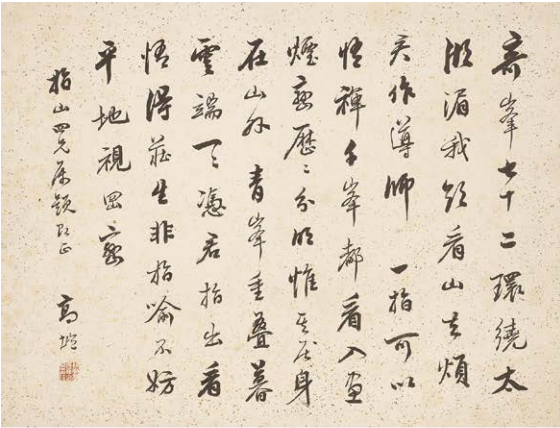 奇峯七十二環繞太
湖湄我欲看山去煩
君作導師 一指可以
悟禪千峯都看入畫
煙巒歷〻分明惟其居身
在山外 青峯重疊暮
雲端一一憑君指出看
悟得莊生非指喻不妨
平地視岡巒
指山四兄屬題即正 高塏